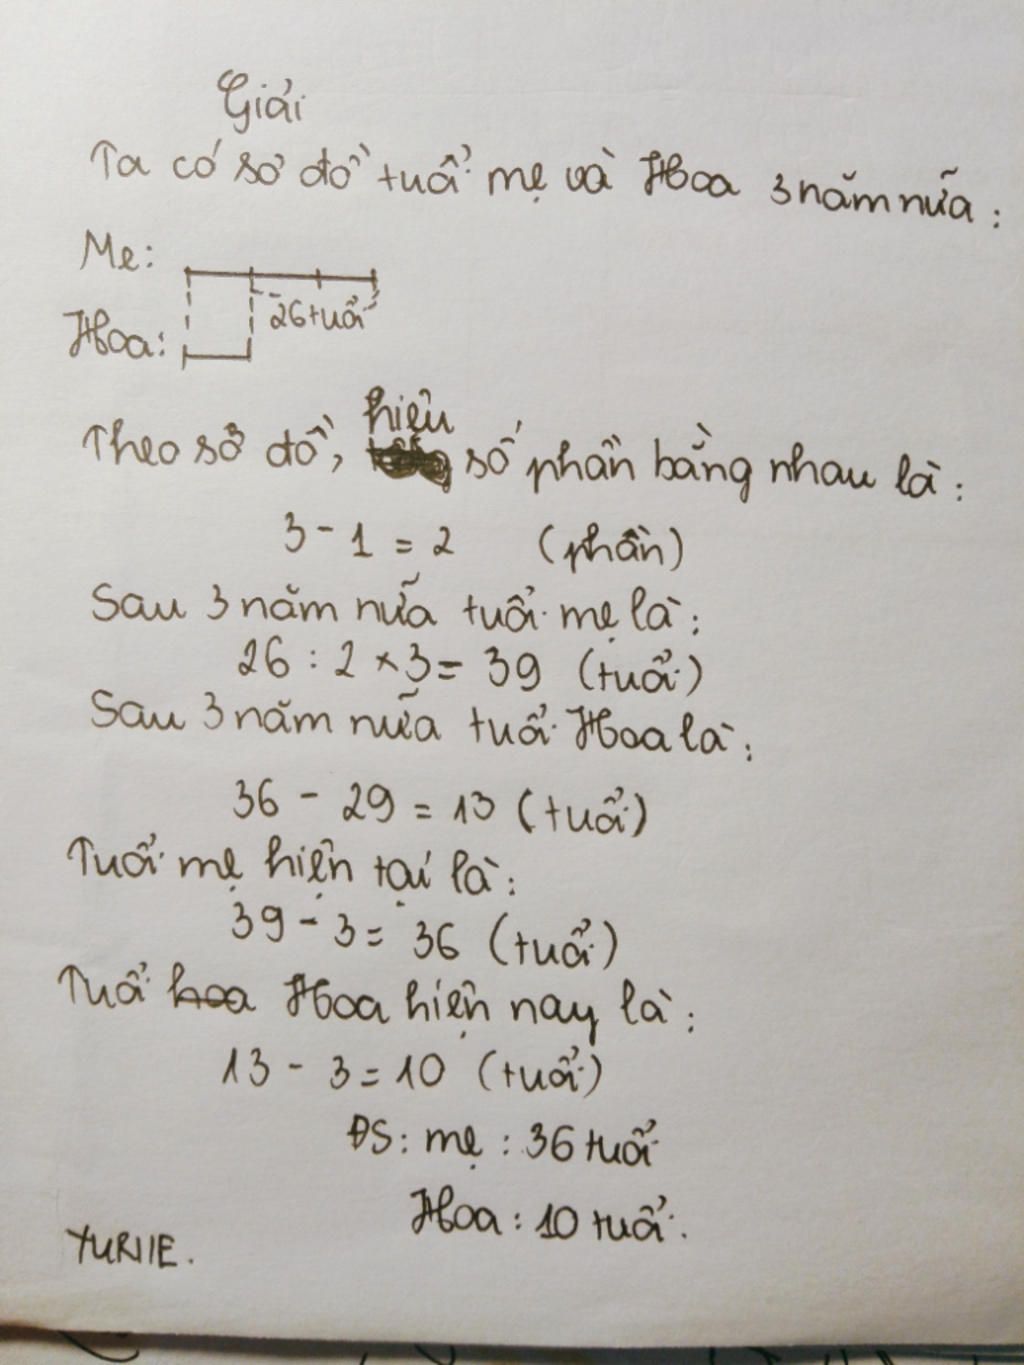 Giải
Ta có sơ đồ tuổi mẹ và Hoa 3 năm nữa:
Mẹ:
26 tuổi
Hoa:
Theo sơ đồ, hiệu số phần bằng nhau là:
3 - 1 = 2 (phần)
Sau 3 năm nữa tuổi mẹ là:
26 : 2 × 3 = 39 (tuổi)
Sau 3 năm nữa tuổi Hoa là:
36 - 29 = 13 (tuổi)
Tuổi mẹ hiện tại là:
39 - 3 = 36 (tuổi)
Tuổi hoa Hoa hiện nay là:
13 - 3 = 10 (tuổi)
ĐS: mẹ: 36 tuổi
Hoa: 10 tuổi.
YURIIE.